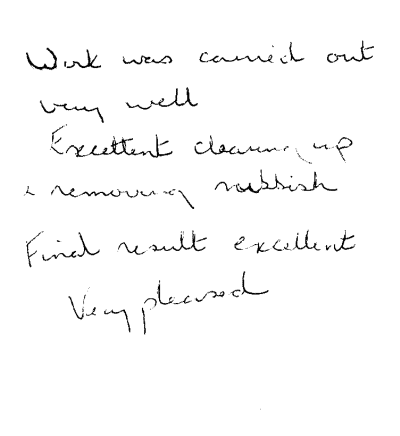 Work was carried out
very well
Excellent clearing up
& removing rubbish
Final result excellent
Very pleased